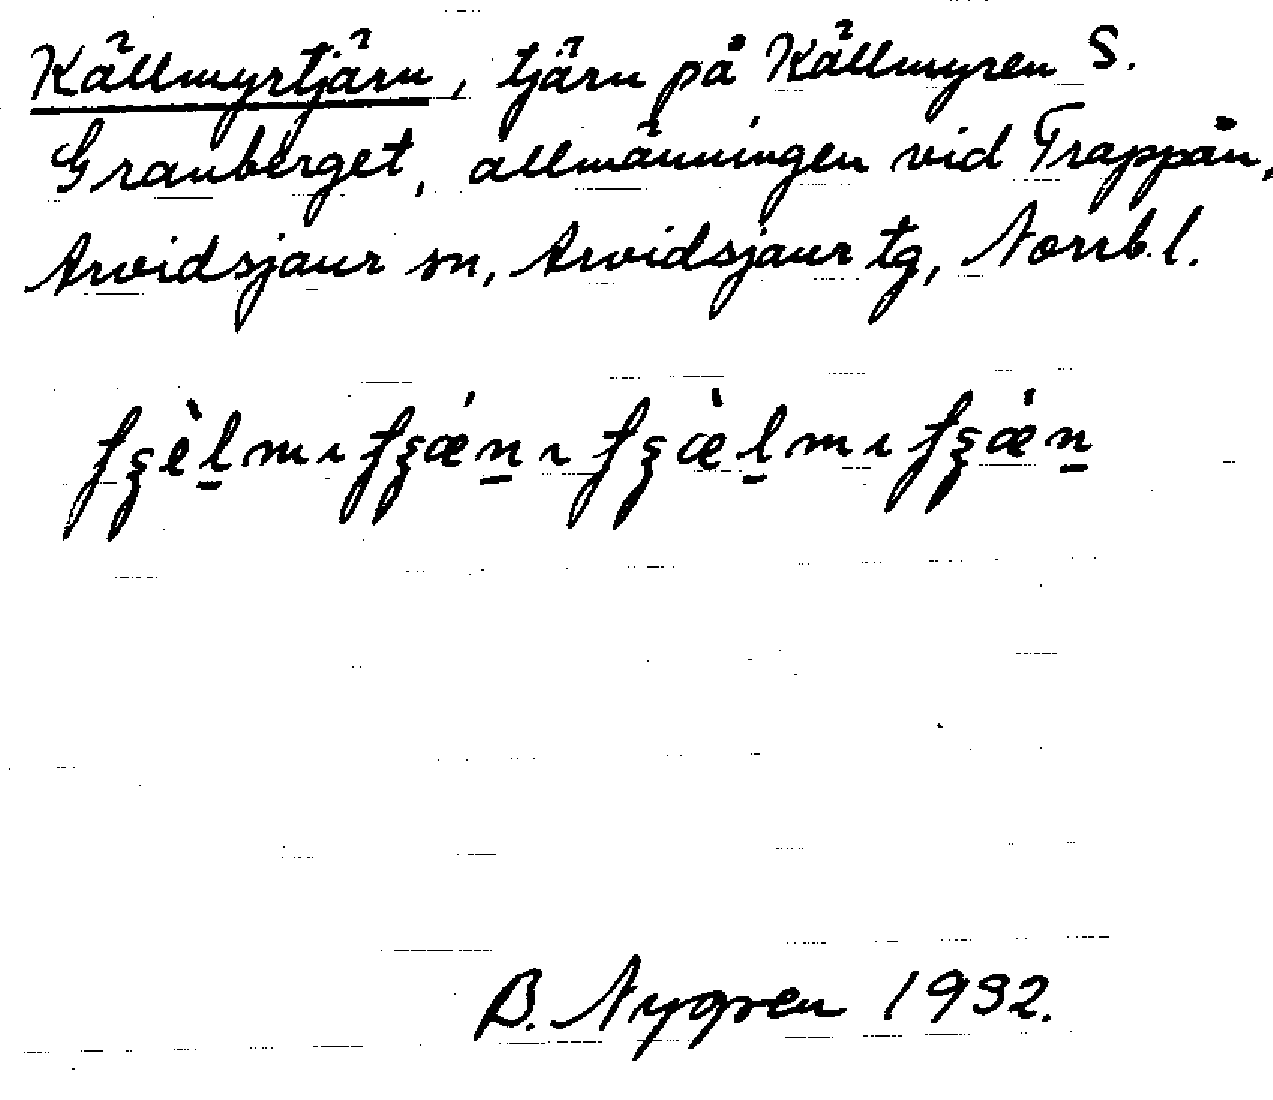 Källmyrtjärn, tjärn på Källmyren S.
Granberget, allmänningen vid Trappån,
Arvidsjaur sn, Arvidsjaur tg, Norrb. l.
B. Nygren 1932.